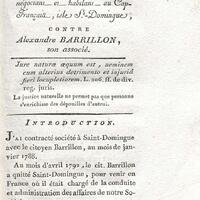 négociant et habitant au Cap-
Français, isle St-Domingue,
CONTRE
Alexandre BARRILLON,
son associé.
Jure naturæ æquum est, neminem
cum alterius detrimento et injuriâ
fieri locupletiorem. L. 206. ff. de div.
reg. juris.
La justice naturelle ne permet pas que personne
s'enrichisse des dépouilles d'autrui.
INTRODUCTION.
J'AI contracté société à Saint-Domingue
avec le citoyen Barrillon, au mois de jan-
vier 1788.
Au mois d'avril 1790, le cit. Barrillon
a quitté Saint-Domingue, pour venir en
France où il était chargé de la conduite
et administration des affaires de notre So-